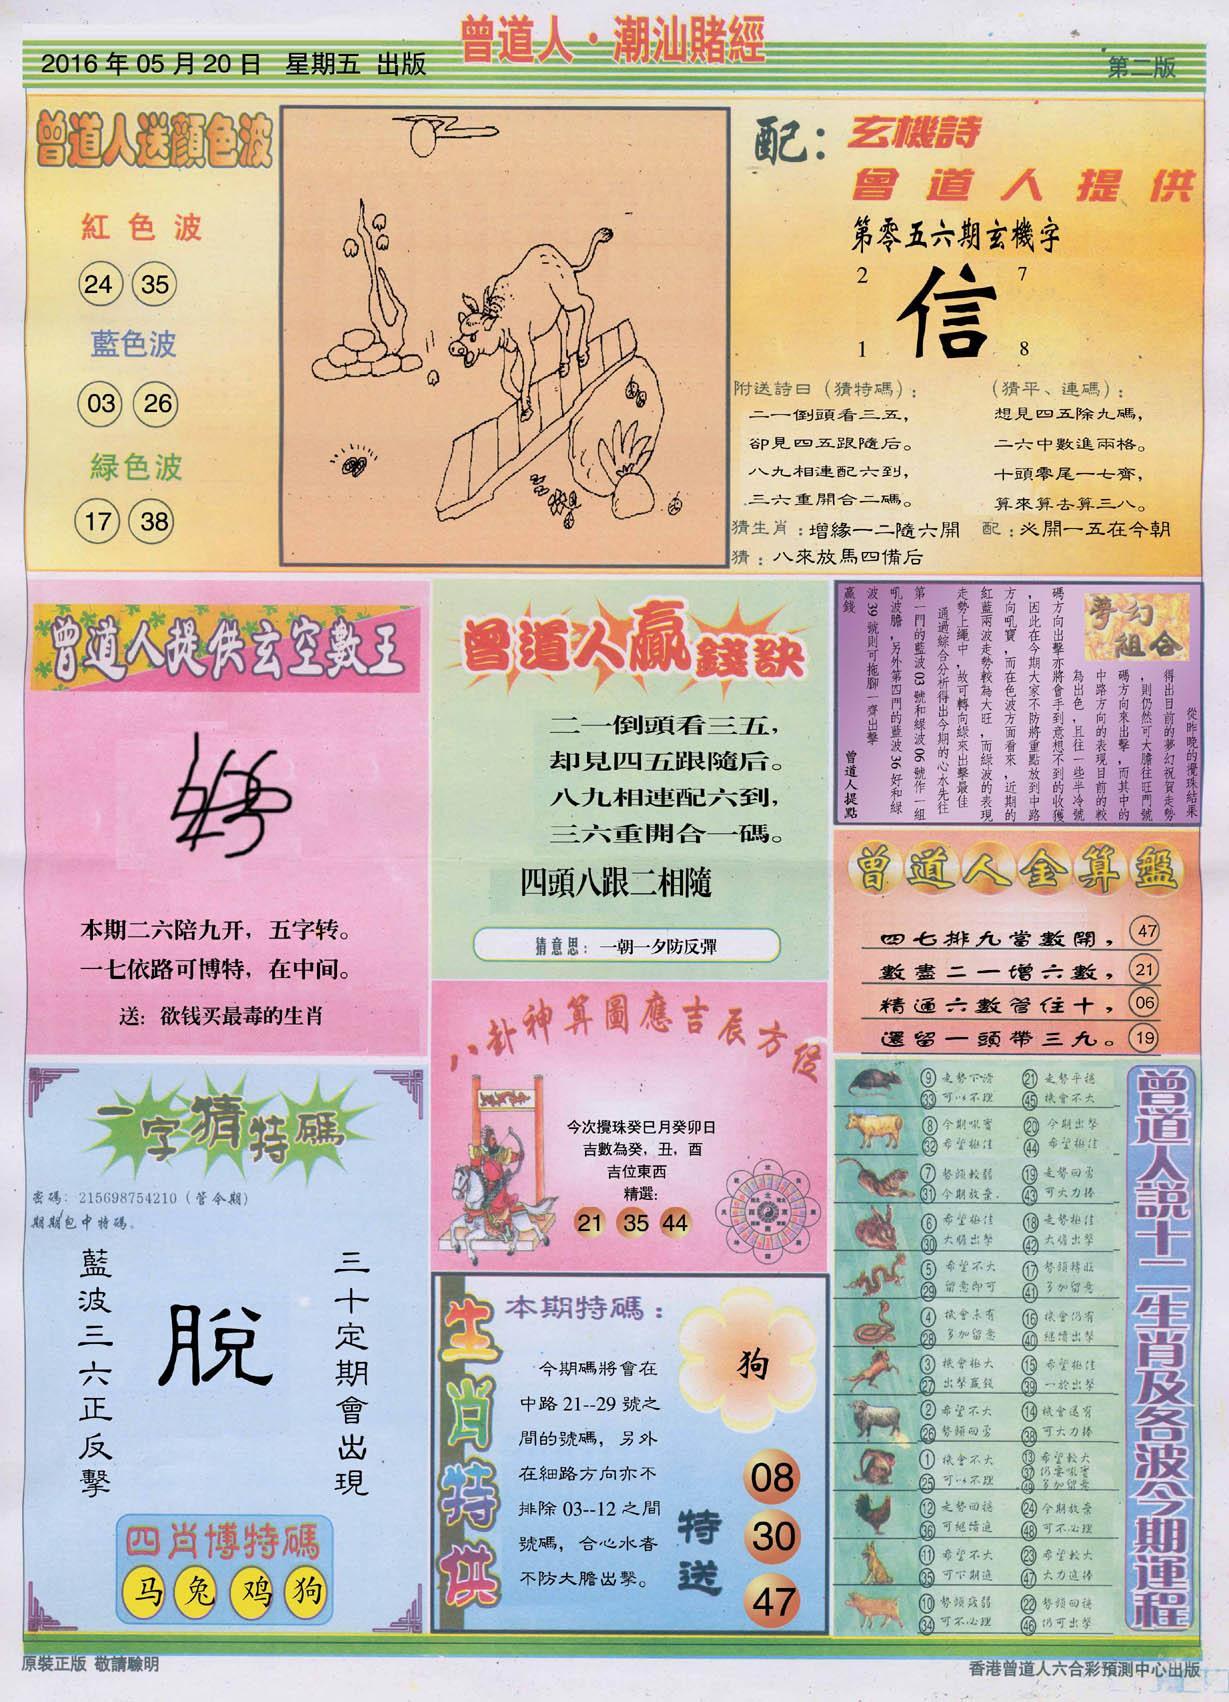 曾道人·潮汕賭經
2016 年 05 月 20 日 星期五 出版
第二版
曾道人送顏色波
紅色波
24 35
藍色波
03 26
緑色波
17 38
配：玄機詩
曾道人提供
第零五六期玄機字
2 7
信
1 8
附送詩曰（猜特碼）：
二一倒頭看三五，
卻見四五跟隨后。
八九相連配六到，
三六重開合二碼。
（猜平、連碼）：
想見四五除九碼，
二六中數進兩格。
十頭零尾一七齊，
算來算去算三八。
猜生肖：增緣一二隨六開
配：必開一五在今朝
猜：八來放馬四備后
曾道人提供玄空數王
本期二六陪九开，五字转。
一七依路可博特，在中间。
送：欲钱买最毒的生肖
曾道人贏錢訣
二一倒頭看三五，
却見四五跟隨后。
八九相連配六到，
三六重開合一碼。
四頭八跟二相隨
猜意思：一朝一夕防反彈
夢幻組合
從昨晚的攪珠結果
得出目前的夢幻祝賀走勢
，則仍然可大膽往旺門號
碼方向來出擊，而其中的
中路方向的表現目前的較
為出色，且往一些半冷號
碼方向出擊亦將會手到意想不到的收獲
，因此在今期大家不防將重點放到中路
方向吼寶，而在色波方面看來，近期的
紅藍兩波走勢較為大旺，而綠波的表現
走勢上繩中，故可轉向綠來出擊最佳
通過綜合分析得出今期的心水先往
第一門的藍波 03 號和綠波 06 號作一組
吼波膽，另外第四門的藍波 36 好和綠
波 39 號則可拖腳一齊出擊
贏錢
曾道人提點
曾道人金算盤
四七排九當數開， 47
數盡二一增六數， 21
精通六數管住十， 06
還留一頭帶三九。 19
八卦神算圖應吉辰方位
今次攪珠癸巳月癸卯日
吉數為癸，丑，酉
吉位東西
精選：
21 35 44
一字猜特碼
密碼：215698754210（管今期）
期期包中特碼。
三十定期會出現
脫
藍波三六正反擊
四肖博特碼
马 兔 鸡 狗
生肖特供
本期特碼：
狗
今期碼將會在
中路 21--29 號之
間的號碼，另外
在細路方向亦不
排除 03--12 之間
號碼，合心水者
不防大膽出擊。
特送
08
30
47
曾道人説十二生肖及各波今期運程
⑨ 走勢下滑 ㉑ 走勢平穩
㉝ 可以不理 ㊺ 機會不大
⑧ 今期吼實 ⑳ 今期出擊
㉜ 希望極佳 ㊹ 希望極佳
⑦ 勢頭較弱 ⑲ 走勢回勇
㉛ 今期放棄. ㊸ 可大力捧
⑥ 希望極佳 ⑱ 走勢極佳
㉚ 大膽出擊 ㊷ 大膽出擊
⑤ 希望不大 ⑰ 勢頭轉旺
㉙ 留意即可 ㊶ 多加留意
④ 機會未有 ⑯ 機會仍有
㉘ 多加留意 ㊵ 繼續出擊
③ 機會極大 ⑮ 希望極佳
㉗ 出擊贏錢 ㊴ 一於出擊
② 希望不大 ⑭ 機會還有
㉖ 勢頭回勇 ㊳ 可大力捧
① 機會不大 ⑬ 希望較大
㉕ 可以不理 ㊲ 仍要吼實
㊾ 多加留意
⑫ 走勢回穩 ㉔ 今期放棄
㊱ 可繼續追 ㊽ 可不必理
⑪ 希望不大 ㉓ 希望較大
㉟ 可下期追 ㊼ 大力追捧
⑩ 勢頭疲弱 ㉒ 勢頭回穩
㉞ 可不必理 ㊻ 仍可出擊
原裝正版 敬請驗明
香港曾道人六合彩預測中心出版